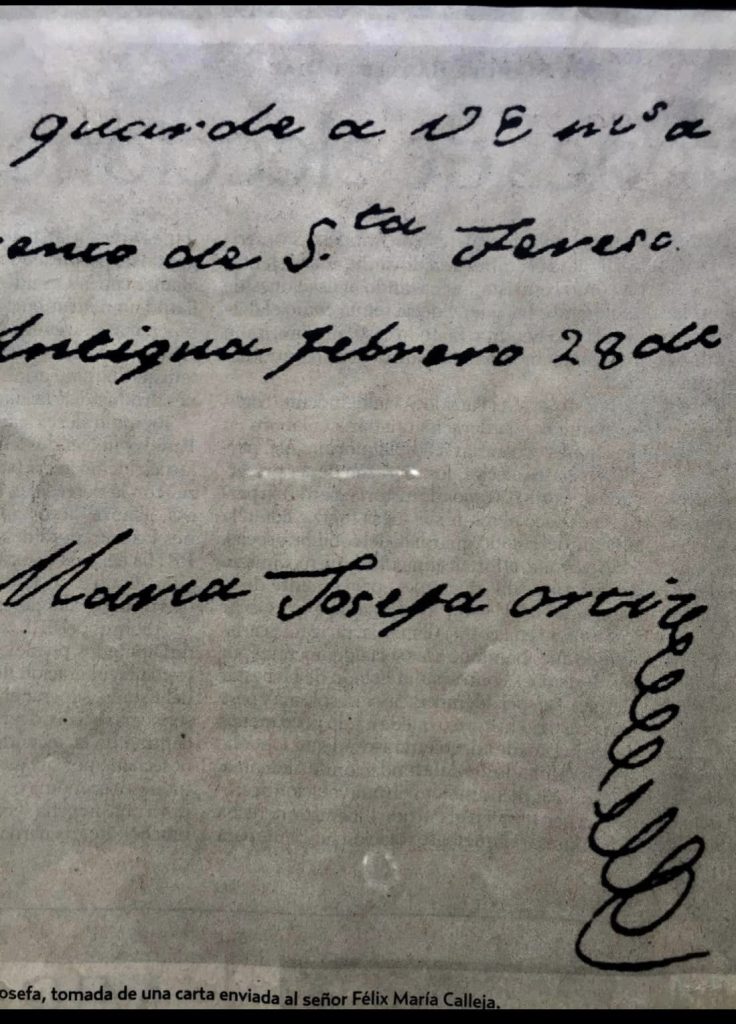 guarde a V E m.s a
ento de S.ta Teresa
Antigua febrero 28 de
Maria Josefa Ortiz
osefa, tomada de una carta enviada al señor Félix María Calleja.